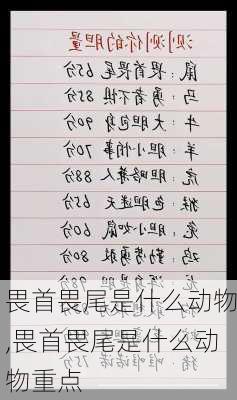 测测你的胆量
鼠：畏首畏尾65分
马：勇者不惧85分
牛：大胆包身90分
羊：胆小怕事70分
虎：胆略兼人88分
猴：色胆迷天65分
兔：胆小如鼠60分
鸡：勤劳勇敢80分
畏首畏尾是什么动物
,畏首畏尾是什么动
物重点
猪：唯唯诺诺